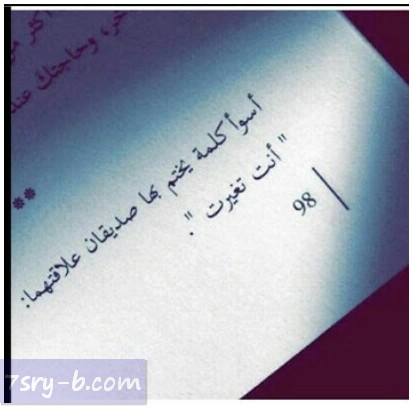 أكثر
خر، وحاجتك عند
**
أسوأ كلمة يختم بها صديقان علاقتهما:
"أنت تغيرت".
98
7sry-b.com